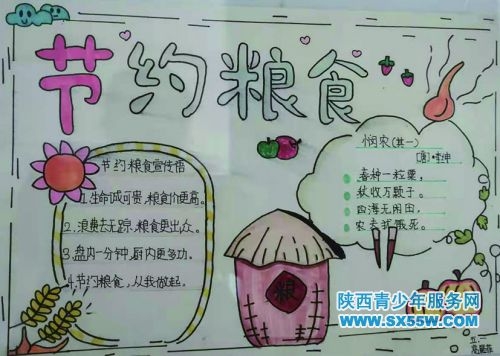 节约粮食
悯农(其一)
[唐]·李绅
春种一粒粟,
秋收万颗子。
四海无闲田,
农夫犹饿死。
节约粮食宣传语
1.生命诚可贵,粮食价更高。
2.浪费去无踪,粮食更出众。
3.盘内一分钟,厨内更多功。
4.节约粮食,从我做起。
粮
陕西青少年服务网
www.sx55w.com